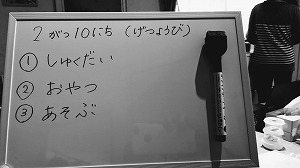 2がつ10にち(げつようび)
① しゅくだい
② おやつ
③ あそぶ